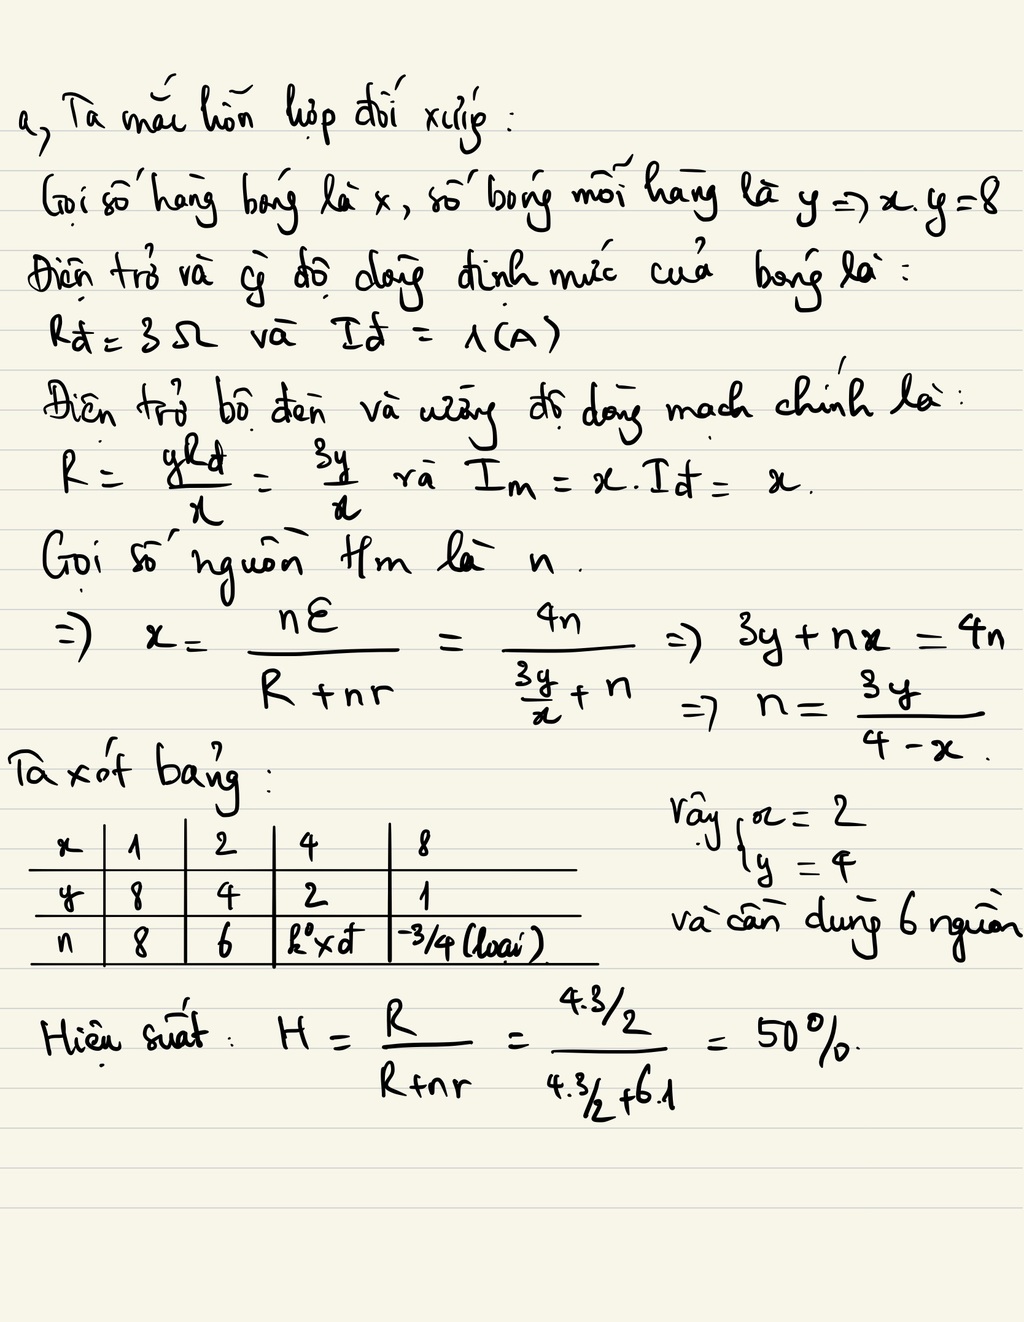 a, Ta mắc hỗn hợp đối xứng :
Gọi số hàng bóng là x, số bóng mỗi hàng là y => x.y = 8
Điện trở và cg độ dòng định mức của bóng là :
Rđ = 3 Ω và Iđ = 1(A)
Điện trở bộ đèn và cường độ dòng mạch chính là :
R = yRđ/x = 3y/x và Im = x.Iđ = x.
Gọi số nguồn là n .
=> x = nℰ/(R + nr) = 4n/(3y/x + n) => 3y + nx = 4n
=> n = 3y/(4 - x) .
Ta xét bảng :
x | 1 | 2 | 4 | 8
y | 8 | 4 | 2 | 1
n | 8 | 6 | k° xđ | -3/4 (loại)
Vậy { x = 2
y = 4
và cần dùng 6 nguồn
Hiệu suất : H = R/(R+nr) = (4.3/2)/(4.3/2 + 6.1) = 50%.